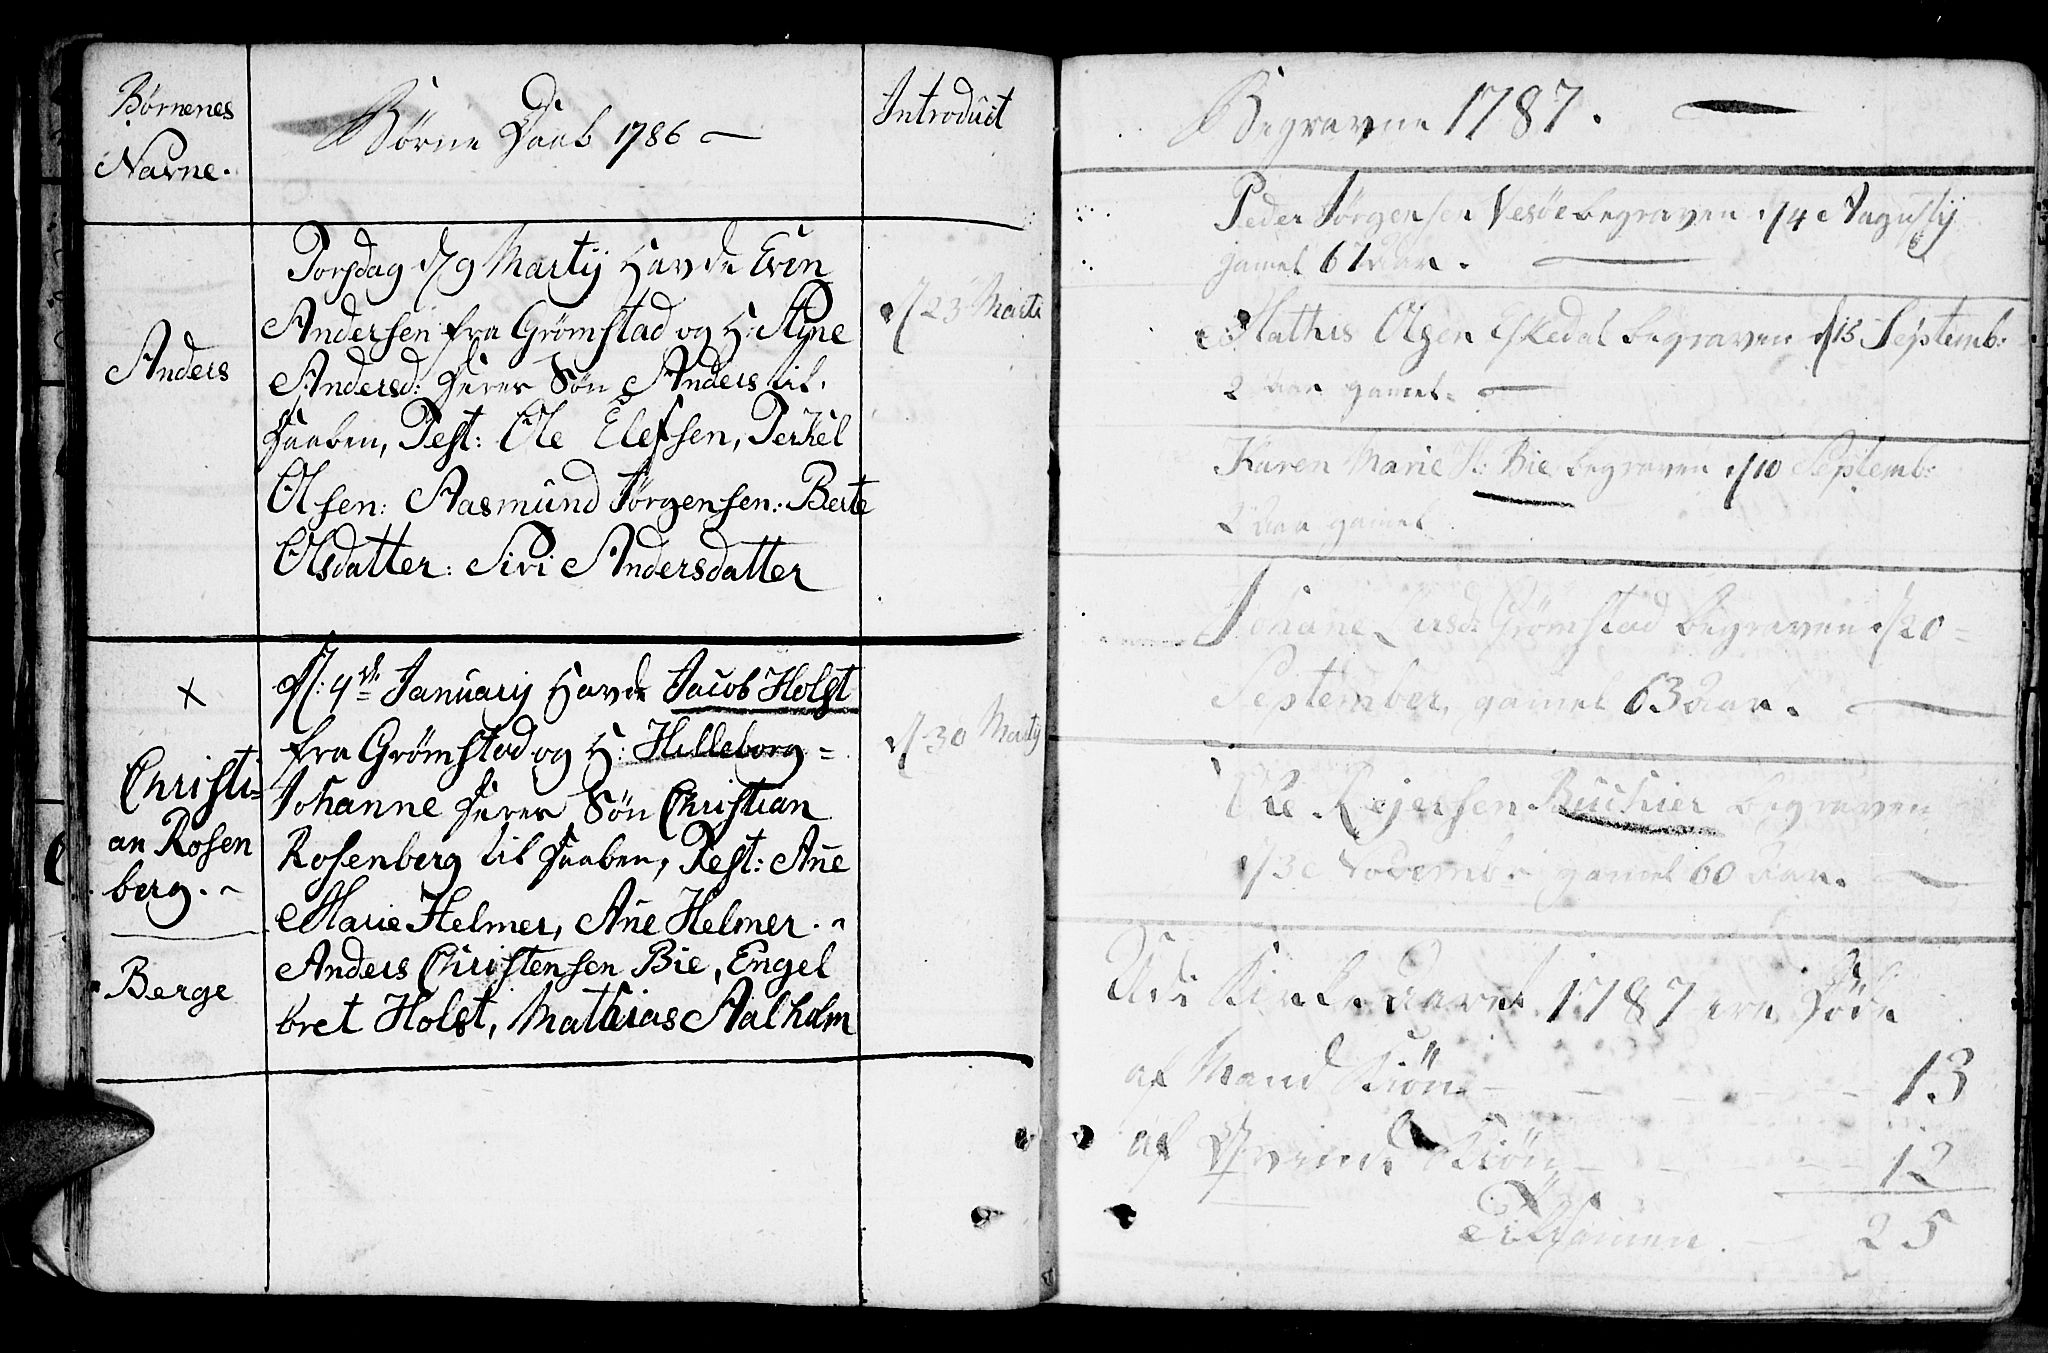 Børnenes
Navne.
Børne Daab 1786
Introduct
Torsdag d/9 Martij havde Even
Andersen fra Grømstad og H: Stine
Andersd: Deres Søn Anders til
Daaben, Test: Ole Elefsen, Terkel
Olsen: Aasmund Jørgensen: Berte
Olsdatter: Siri Andersdatter
Anders
d/23 Marti
d/: 4de Januarij havde Jacob Holst
fra Grømstad og H: Hilleborg =
Johanne Deres Søn Christian
Rosenberg til Daaben, Test: Ane
Marie Helmer, Ane Helmer.
Anders Christensen Bie, Engel
bret Holst, Mathias Aalholm
x
Christi=
an Rosen
berg.
Berge
d/30 Martij
Begravne 1787.
Peder Jørgensen Vesøe begraven d/4 Augustij
gamel 67 aar.
Mathis Olsen Eskedal begraven d/13 Septemb:
2 aar gamel.
Karen Marie H: Bie begraven d/10 Septemb:
2 aar gamel
Johane Larsd: Grømstad begraven d/20 =
September, gamel 63 aar.
Ole Rejersen Buchier begraven
d/30 Novemb: gamel 60 aar.
Udi Kirke Aaret 1787 ere Føde
af Mand Kiøn - - - 13
af Qvinde Kiøn - - - 12
Tilsamen. - 25